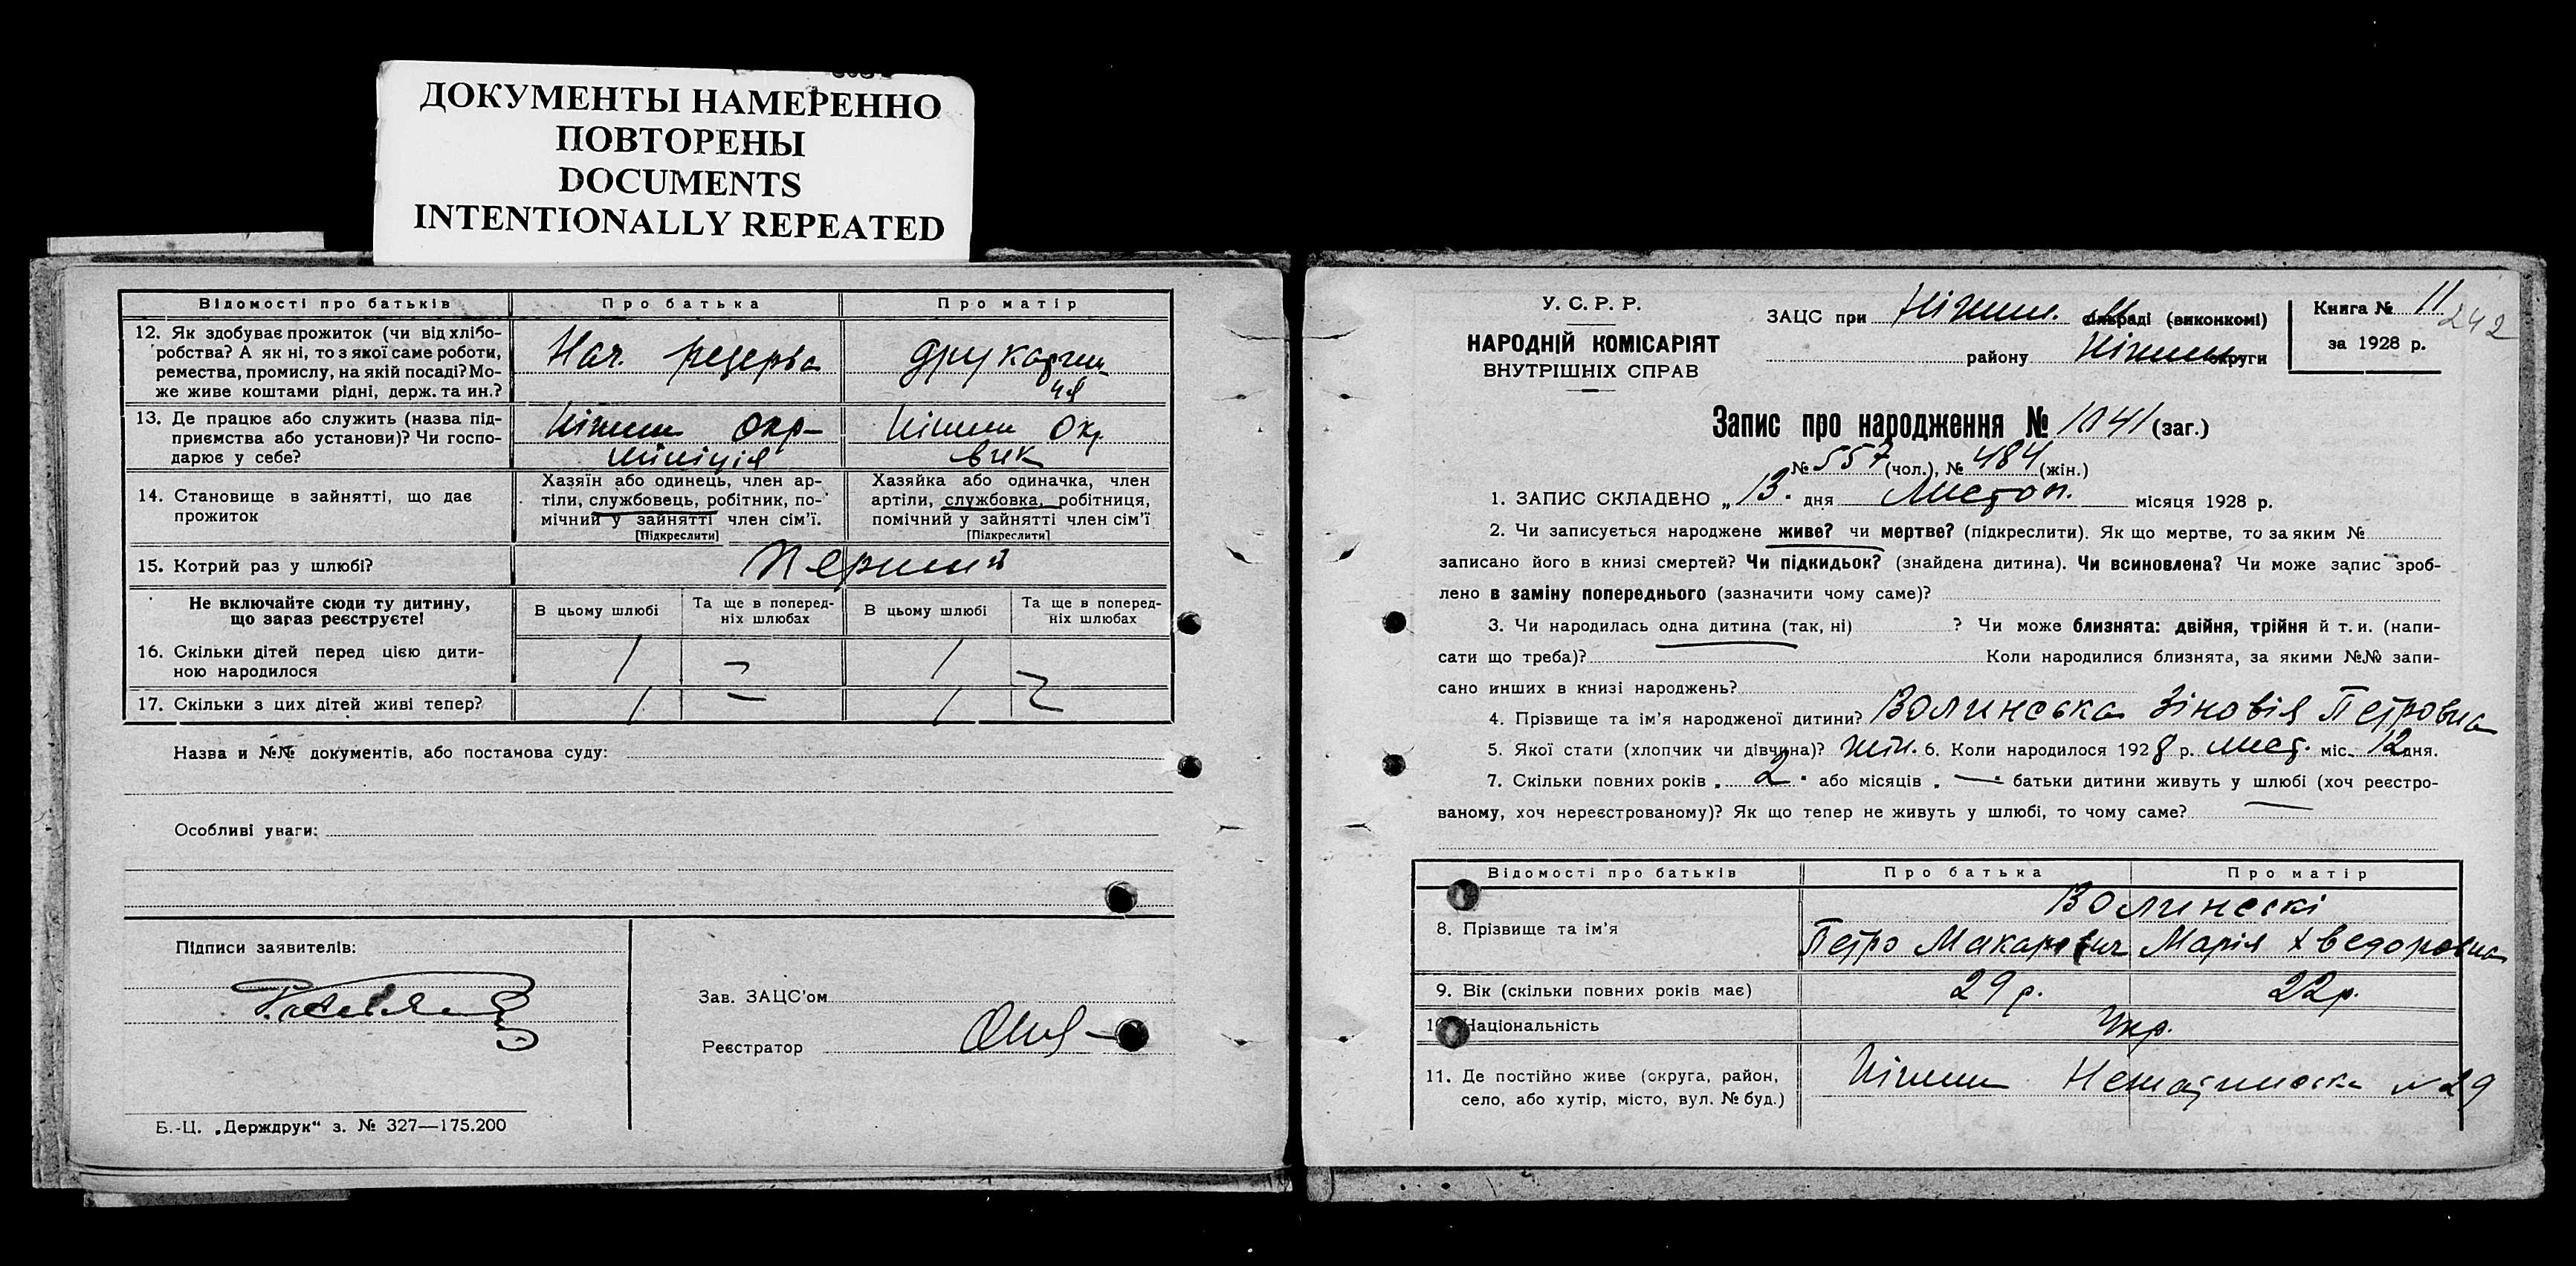 ДОКУМЕНТЫ НАМЕРЕННО
ПОВТОРЕНЫ
DOCUMENTS
INTENTIONALLY REPEATED
Відомості про батьків Про батька Про матір
12. Як здобуває прожиток (чи від хлібо-
робства? А як ні, то з якої саме роботи,
ремества, промислу, на якій посаді? Мо-
же живе коштами рідні, держ. та ин.?
Нач. резерва
13. Де працює або служить (назва під-
приємства або установи)? Чи госпо-
дарює у себе?
Ніжин Окр-
міліція
Ніжин Окр
вик
14. Становище в зайнятті, що дає
прожиток
Хазяїн або одинець, член ар-
тіли, службовець, робітник, по-
мічний у зайнятті член сім’ї.
[Підкреслити]
Хазяйка або одиначка, член
артіли, службовка, робітниця,
помічний у зайнятті член сім’ї
[Підкреслити]
15. Котрий раз у шлюбі? Перший
Не включайте сюди ту дитину,
що зараз реєструєте!
В цьому шлюбі
Та ще в поперед-
ніх шлюбах
В цьому шлюбі
Та ще в поперед-
ніх шлюбах
16. Скільки дітей перед цією дити-
ною народилося
1 — 1
17. Скільки з цих дітей живі тепер? 1 — 1
Назва и №№ документів, або постанова суду:
Особливі уваги:
Підписи заявителів:
Зав. ЗАЦС’ом
Реєстратор
Б.-Ц. „Держдрук“ з. № 327—175.200
У. С. Р. Р.
НАРОДНІЙ КОМІСАРІЯТ
ВНУТРІШНІХ СПРАВ
ЗАЦС при Ніжин. М раді (виконкомі)
району Ніжин округи
Книга № 11
за 1928 р.
242
Запис про народження № 1041 (заг.)
№ 557 (чол.), № 484 (жін.)
1. ЗАПИС СКЛАДЕНО „13" дня Листоп. місяця 1928 р.
2. Чи записується народжене живе? чи мертве? (підкреслити). Як що мертве, то за яким №
записано його в книзі смертей? Чи підкидьок? (знайдена дитина). Чи всиновлена? Чи може запис зроб-
лено в заміну попереднього (зазначити чому саме)?
3. Чи народилась одна дитина (так, ні) ? Чи може близнята: двійня, трійня й т. и. (напи-
сати що треба)? Коли народилися близнята, за якими №№ запи-
сано инших в книзі народжень?
4. Прізвище та ім’я народженої дитини? Волинська Зіновія Петровна
5. Якої стати (хлопчик чи дівчина)? жін. 6. Коли народилося 1928 р. лист. міс. 12 дня.
7. Скільки повних років „ 2 " або місяців „ — " батьки дитини живуть у шлюбі (хоч реєстро-
ваному, хоч нереєстрованому)? Як що тепер не живуть у шлюбі, то чому саме? —
Відомості про батьків Про батька Про матір
Волинскі
8. Прізвище та ім’я Петро Макарович Марія Хведоровна
9. Вік (скільки повних років має) 29 р. 22 р.
10. Національність Укр.
11. Де постійно живе (округа, район,
село, або хутір, місто, вул. № буд.)
Ніжин № 29